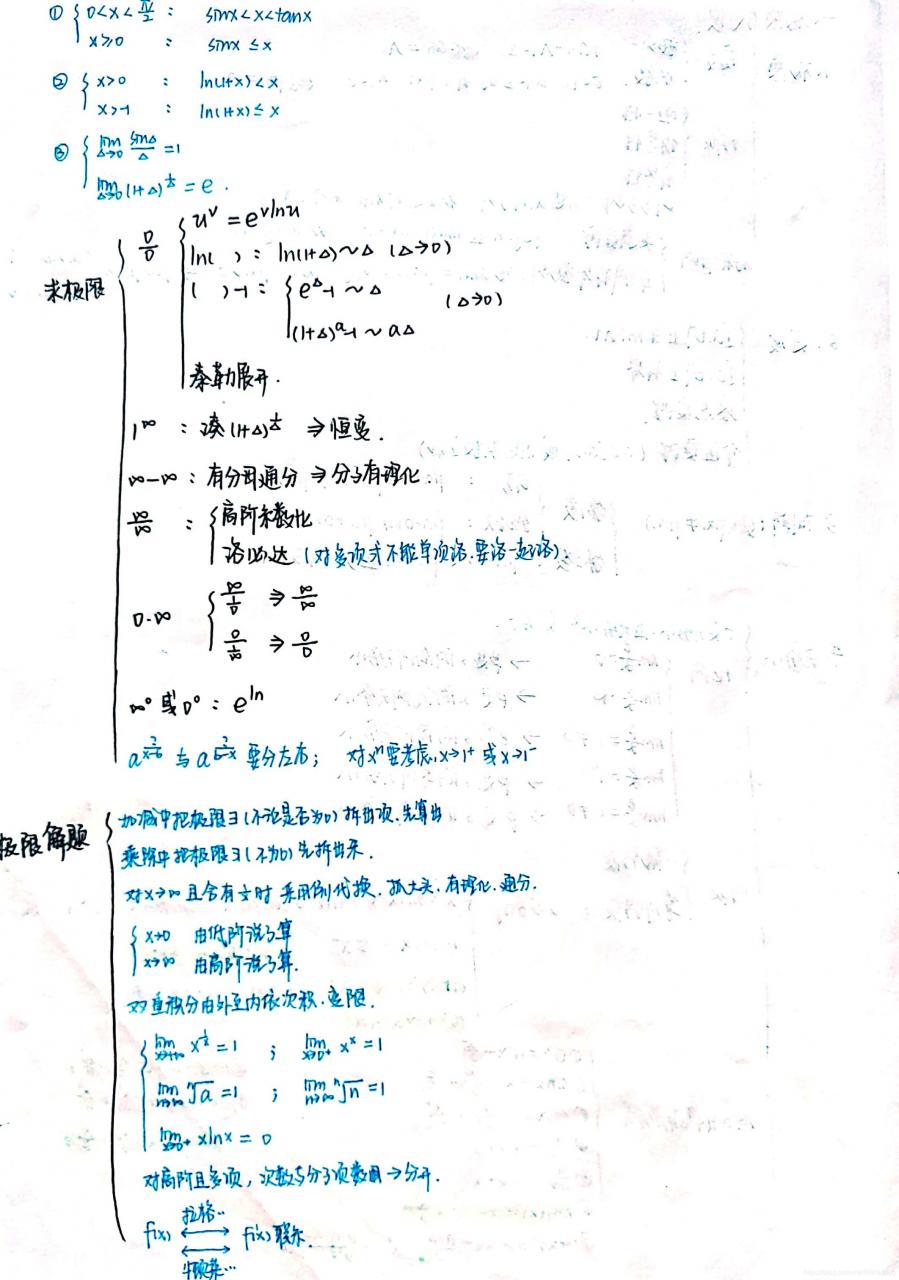 ① 0<x<π/2 : sinx<x<tanx
x≥0 : sinx≤x
② x>0 : ln(1+x)<x
x>-1 : ln(1+x)≤x
③ lim Δ→0 sinΔ/Δ =1
lim Δ→0 (1+Δ)^(1/Δ) = e.
求极限
0/0
u^v = e^(vlnu)
ln( ) : ln(1+Δ)~Δ (Δ→0)
( )-1 : e^Δ-1 ~ Δ (Δ→0)
(1+Δ)^a-1 ~ aΔ
泰勒展开.
1^∞ : 凑(1+Δ)^(1/Δ) ⇒恒变.
∞-∞ : 有分母通分 ⇒分子有理化.
∞/∞ : 高阶系数比
洛必达 (对多项式不能单项洛.要洛一起洛).
0·∞ ∞/(1/0) ⇒ ∞/∞
0/(1/∞) ⇒ 0/0
∞^0 或 0^0 : e^ln
要分左右; 对x^n要考虑x→1+ 或x→1-
极限解题
加减中把极限∃(不论是否为0)拆出项.先算出
乘除中把极限∃(不为0)先拆出来.
对x→∞且含有 时 采用倒代换.抓大头.有理化.通分.
x→0 由低阶说了算
x→∞ 由高阶说了算.
对重积分由外至内依次积.变限.
lim x→+∞ x^(1/x) =1 ; lim x→0+ x^x =1
lim n→∞ ⁿ√a =1 ; lim n→∞ ⁿ√n =1
lim x→0+ xlnx = 0
对高阶且多项, 次数与分子项数同→分开.
拉格..
f(x) ⟷ f'(x)联系.
牛顿莱...